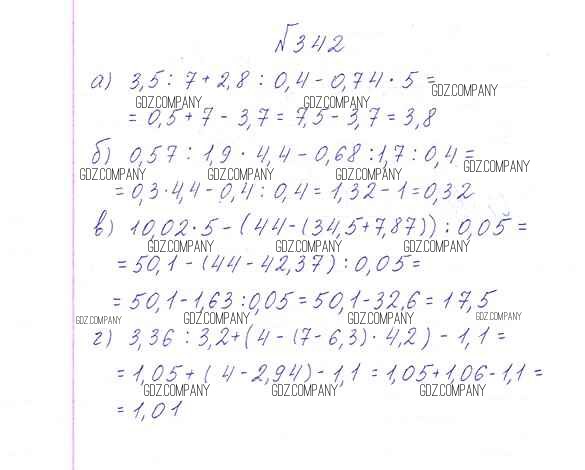 №342
а) 3,5 : 7 + 2,8 : 0,4 - 0,74 · 5 =
GDZ.COMPANY GDZ.COMPANY GDZ.COMPANY
= 0,5 + 7 - 3,7 = 7,5 - 3,7 = 3,8
б) 0,57 : 1,9 · 4,4 - 0,68 : 1,7 : 0,4 =
GDZ.COMPANY GDZ.COMPANY GDZ.COMPANY GDZ.COMPANY
= 0,3 · 4,4 - 0,4 : 0,4 = 1,32 - 1 = 0,32
в) 10,02 · 5 - (44 - (34,5 + 7,87)) : 0,05 =
GDZ.COMPANY GDZ.COMPANY GDZ.COMPANY
= 50,1 - (44 - 42,37) : 0,05 =
= 50,1 - 1,63 : 0,05 = 50,1 - 32,6 = 17,5
GDZ.COMPANY GDZ.COMPANY GDZ.COMPANY GDZ.COMPANY
г) 3,36 : 3,2 + (4 - (7 - 6,3) · 4,2) - 1,1 =
= 1,05 + (4 - 2,94) - 1,1 = 1,05 + 1,06 - 1,1 =
GDZ.COMPANY GDZ.COMPANY GDZ.COMPANY
= 1,01